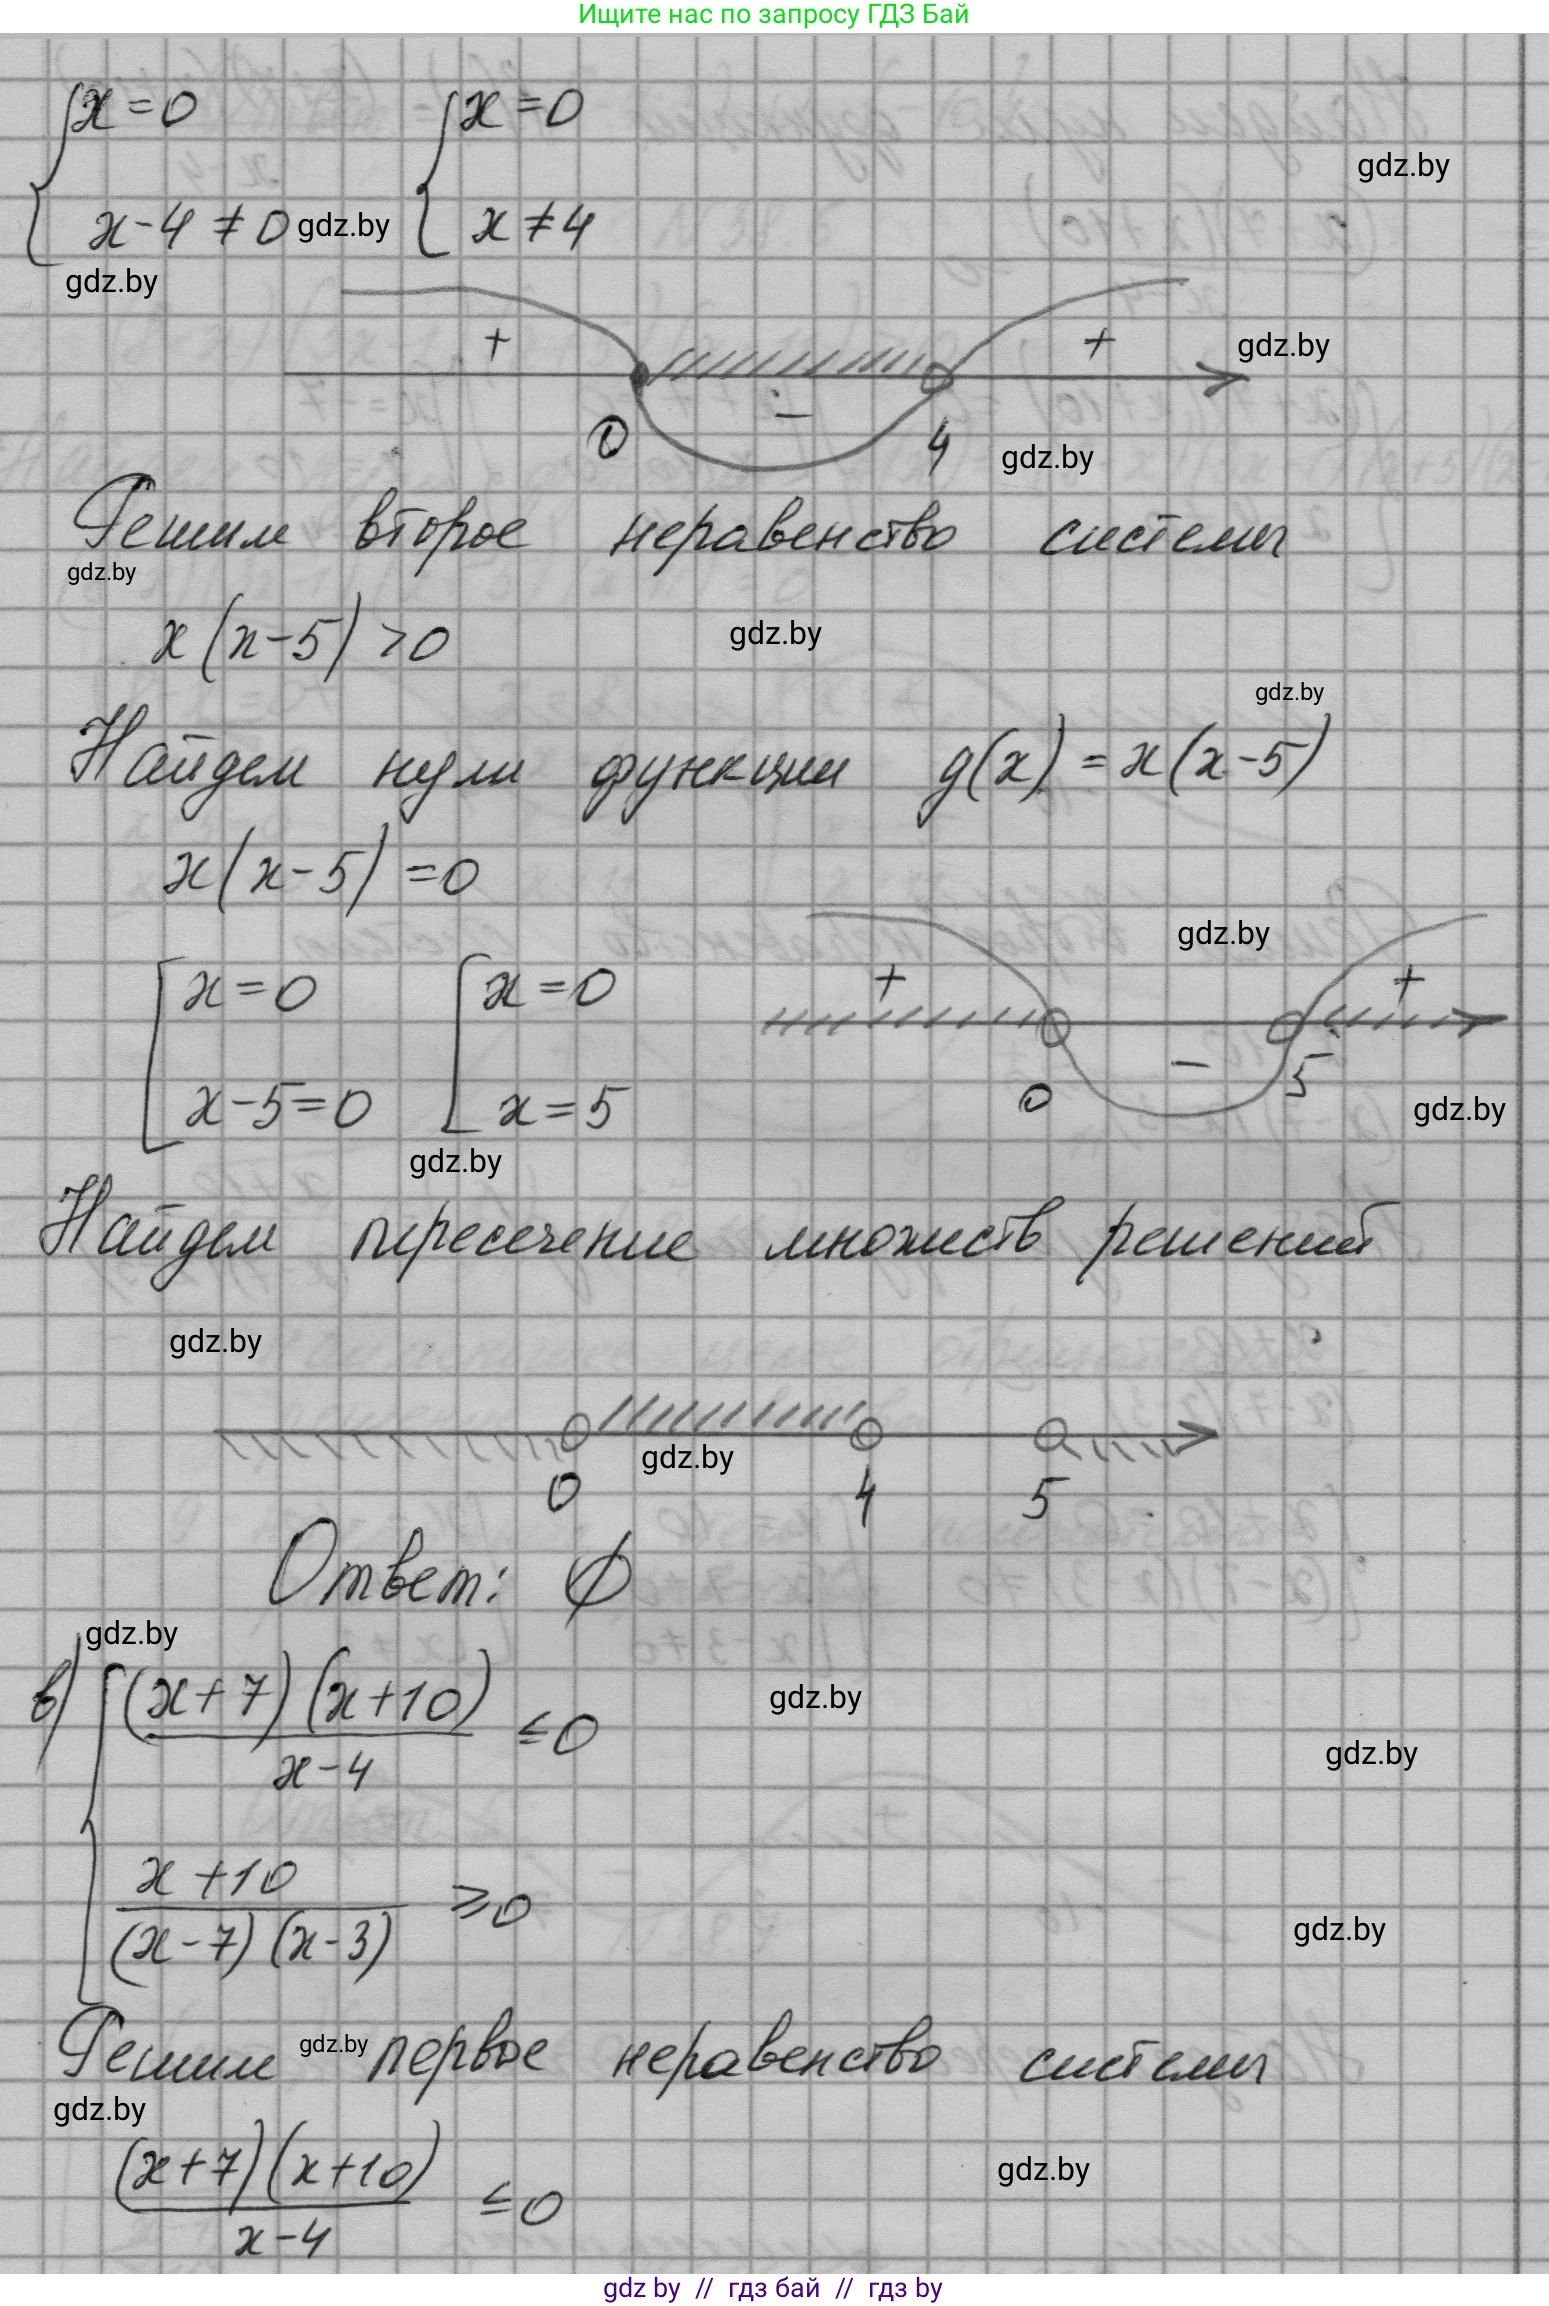 Ищите нас по запросу ГДЗ Бай
x=0 x=0
gdz.by
x-4≠0 gdz.by x≠4
gdz.by
+ + gdz.by
−
0 4 gdz.by
Решим второе неравенство системы
gdz.by
x(x-5)>0 gdz.by
gdz.by
Найдем нули функции g(x)=x(x-5)
x(x-5)=0
gdz.by
x=0 x=0 + +
− 5
x-5=0 x=5 0 gdz.by
gdz.by
Найдем пересечение множеств решений
gdz.by
gdz.by
0 4 5
Ответ: ∅
gdz.by
в) (x+7)(x+10) ≤0 gdz.by
x-4 gdz.by
x+10 ≥0
(x-7)(x-3) gdz.by
Решим gdz.by первое неравенство системы
gdz.by
(x+7)(x+10) ≤0 gdz.by
x-4
gdz by // гдз бай // гдз by